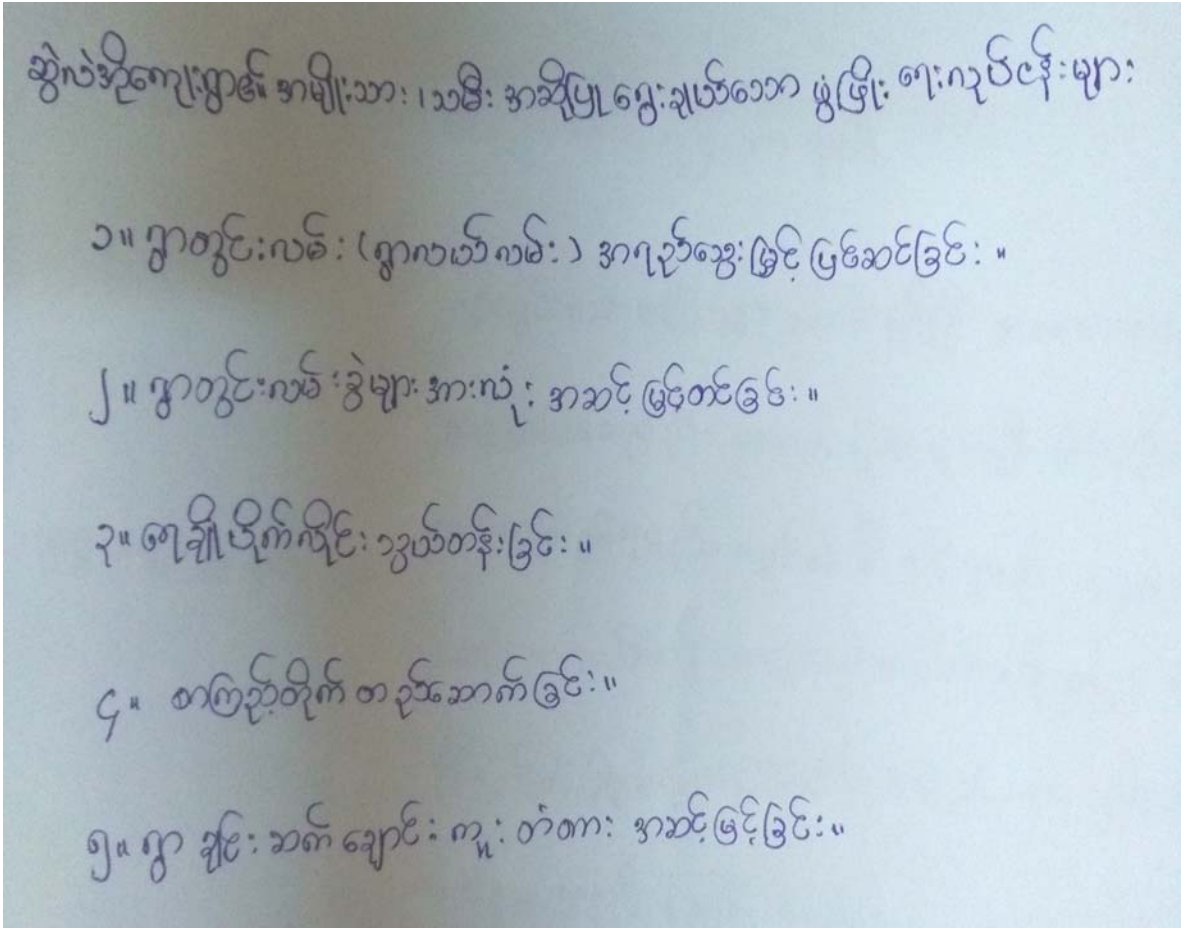 ဆွဲလဲအိုကျေးရွာ၏ အမျိုးသား ၊ သမီး အဆိုပြု ရွေးချယ်သော ဖွံ့ဖြိုး ရေးလုပ်ငန်းများ
၁။ ရွာတွင်းလမ်း (ရွာလယ်လမ်း) အရည်သွေးမြှင့် ပြင်ဆင်ခြင်း ။
၂။ ရွာတွင်းလမ်းခွဲများ အားလုံး အဆင့် မြှင့်တင်ခြင်း ။
၃။ ရေချိုပိုက်လိုင်း သွယ်တန်းခြင်း ။
၄။ စာကြည့်တိုက် တည်ဆောက်ခြင်း ။
၅။ ရွာ ချင်း ဆက် ချောင်း ကူး တံတား အဆင့်မြှင့်ခြင်း ။